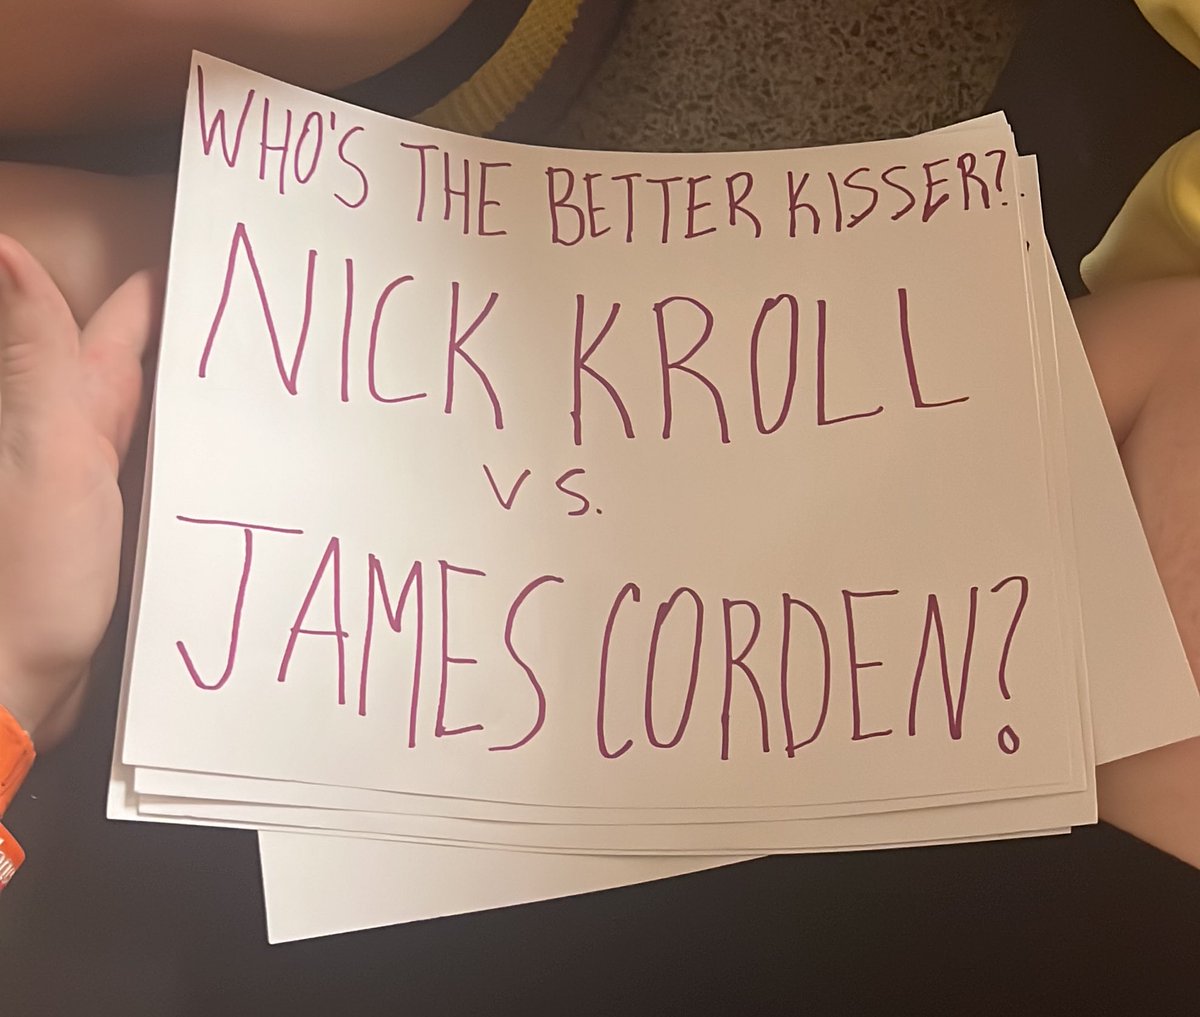 WHO'S THE BETTER KISSER?
NICK KROLL
VS.
JAMES CORDEN?